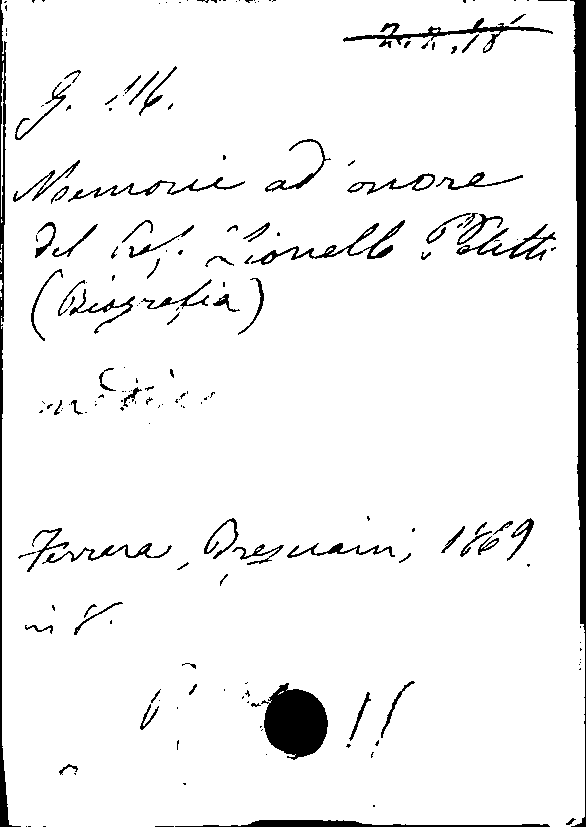 2.2.18
G. 116.
Memorie ad onore
del Prof. Lionello Poletti
(Biografia)
medico
Ferrara, Bresciani, 1869.
in 8.